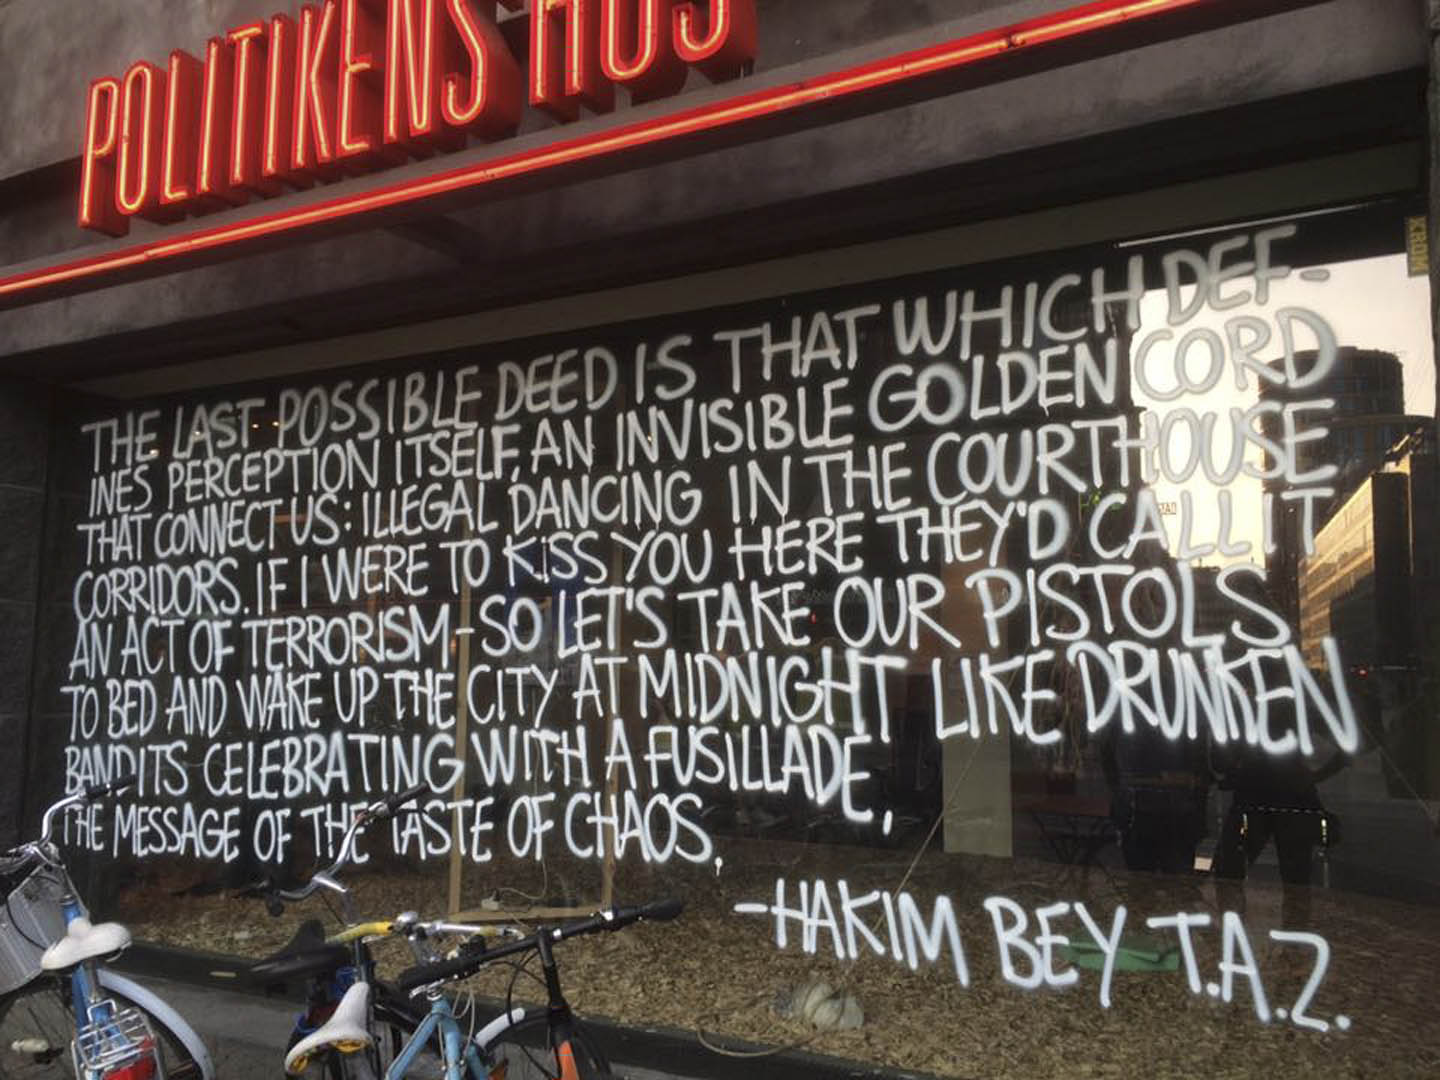 POLITIKENS HUS
THE LAST POSSIBLE DEED IS THAT WHICH DEF-
INES PERCEPTION ITSELF, AN INVISIBLE GOLDEN CORD
THAT CONNECT US: ILLEGAL DANCING IN THE COURTHOUSE
CORRIDORS. IF I WERE TO KISS YOU HERE THEY'D CALL IT
AN ACT OF TERRORISM - SO LET'S TAKE OUR PISTOLS
TO BED AND WAKE UP THE CITY AT MIDNIGHT LIKE DRUNKEN
BANDITS CELEBRATING WITH A FUSILLADE,
THE MESSAGE OF THE TASTE OF CHAOS.
-HAKIM BEY T.A.Z.